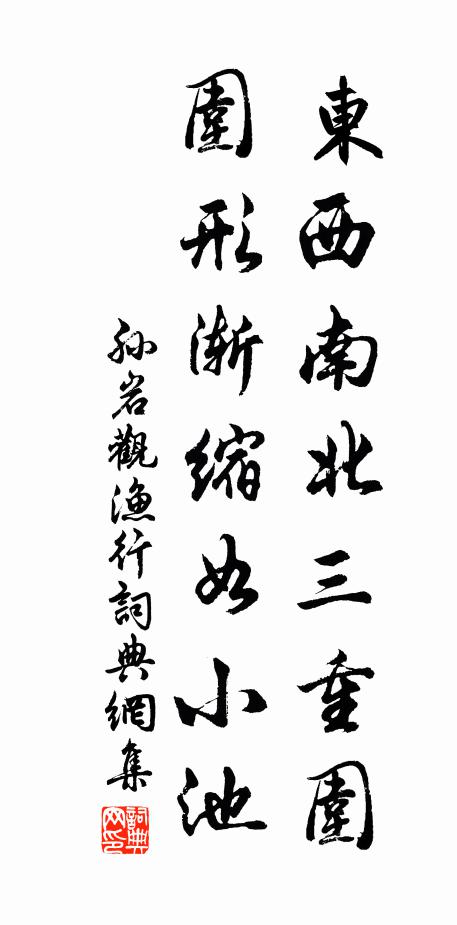 東西南北三重圍
圍形漸縮如小池
孙岩觀漁行詞典網集
詞典网印